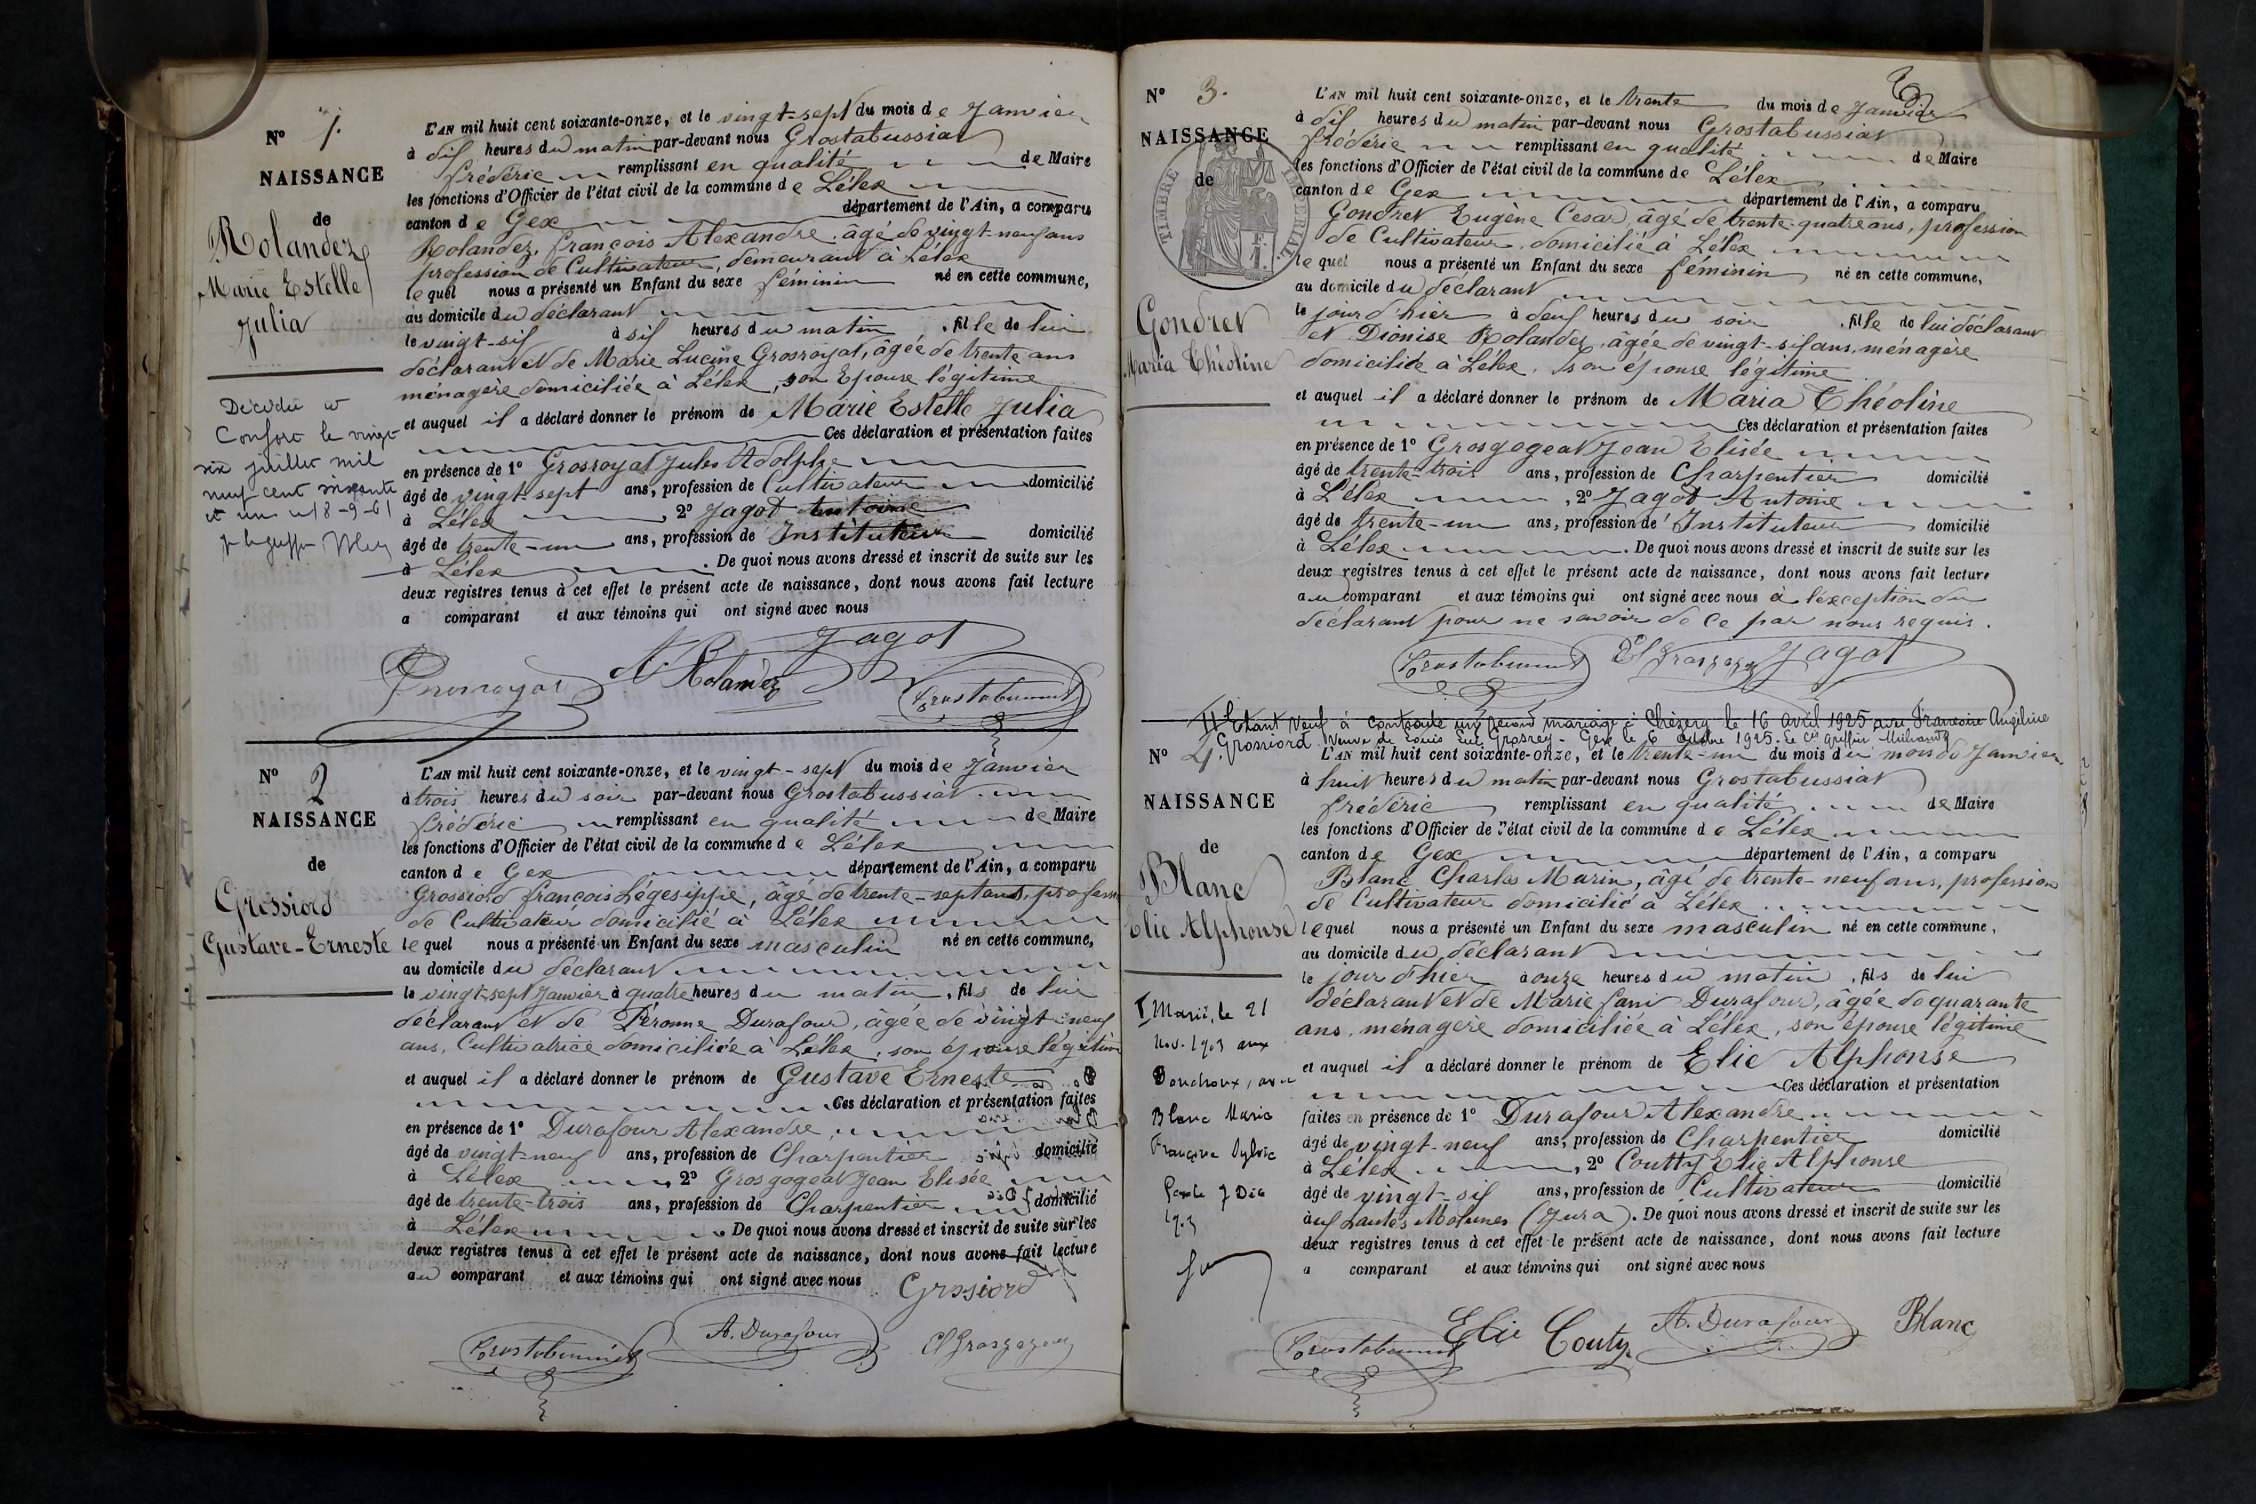 N° 1.
NAISSANCE
de
Rolandez
Marie Estelle
Julia
Décédée à
Confort le vingt
six juillet mil
neuf cent soixante
et un 18-9-61
L'AN mil huit cent soixante-onze, et le vingt-sept du mois de Janvier
à dix heures du matin par-devant nous Grostabussiat
frédéric remplissant en qualité de Maire
les fonctions d'Officier de l'état civil de la commune de Lélex
canton de Gex département de l'Ain, a comparu
Rolandez, françois Alexandre, âgé de vingt-neuf ans
profession de Cultivateur, demeurant à Lélex
lequel nous a présenté un Enfant du sexe féminin né en cette commune,
au domicile du déclarant
le vingt-six à six heures du matin, fille de lui
déclarant et de Marie Lucine Grosroyat, âgée de trente ans
ménagère domiciliée à Lélex, son Epouse légitime
et auquel il a déclaré donner le prénom de Marie Estelle Julia
Ces déclaration et présentation faites
en présence de 1° Grosroyat Jules Adolphe
âgé de vingt-sept ans, profession de Cultivateur domicilié
à Lélex, 2° Jagot Antoine
âgé de trente-un ans, profession de Instituteur domicilié
à Lélex. De quoi nous avons dressé et inscrit de suite sur les
deux registres tenus à cet effet le présent acte de naissance, dont nous avons fait lecture
a comparant et aux témoins qui ont signé avec nous
Jagot
Grosroyat A. Rolandez
Grostabussiat
N° 2
NAISSANCE
de
Grossiord
Gustave-Erneste
L'AN mil huit cent soixante-onze, et le vingt-sept du mois de Janvier
à trois heures du soir par-devant nous Grostabussiat
frédéric remplissant en qualité de Maire
les fonctions d'Officier de l'état civil de la commune de Lélex
canton de Gex département de l'Ain, a comparu
Grossiord françois Légesippe, âgé de trente-sept ans, profession
de Cultivateur domicilié à Lélex
lequel nous a présenté un Enfant du sexe masculin né en cette commune,
au domicile du déclarant
le vingt-sept Janvier à quatre heures du matin, fils de lui
déclarant et de Péronne Durafour, âgée de vingt-neuf
ans, Cultivatrice domiciliée à Lélex, son épouse légitime
et auquel il a déclaré donner le prénom de Gustave Erneste
Ces déclaration et présentation faites
en présence de 1° Durafour Alexandre,
âgé de vingt-neuf ans, profession de Charpentier domicilié
à Lélex, 2° Grosgogeat Jean Elisée
âgé de trente-trois ans, profession de Charpentier domicilié
à Lélex. De quoi nous avons dressé et inscrit de suite sur les
deux registres tenus à cet effet le présent acte de naissance, dont nous avons fait lecture
au comparant et aux témoins qui ont signé avec nous
Grossiord
Grostabussiat A. Durafour El Grosgogeat
N° 3.
NAISSANCE
de
TIMBRE IMPERIAL
1 F.
Gondret
Maria Théoline
L'AN mil huit cent soixante-onze, et le trente du mois de Janvier
à dix heures du matin par-devant nous Grostabussiat
frédéric remplissant en qualité de Maire
les fonctions d'Officier de l'état civil de la commune de Lélex
canton de Gex département de l'Ain, a comparu
Gondret Eugène Cesar, âgé de trente-quatre ans, profession
de Cultivateur, domicilié à Lélex
lequel nous a présenté un Enfant du sexe féminin né en cette commune,
au domicile du déclarant
le jour d'hier à deux heures du soir, fille de lui déclarant
et Dionise Rolandez, âgée de vingt-six ans, ménagère
domiciliée à Lélex, son épouse légitime
et auquel il a déclaré donner le prénom de Maria Théoline
Ces déclaration et présentation faites
en présence de 1° Grosgogeat Jean Elisée
âgé de trente-trois ans, profession de Charpentier domicilié
à Lélex, 2° Jagot Antoine
âgé de trente-un ans, profession de Instituteur domicilié
à Lélex. De quoi nous avons dressé et inscrit de suite sur les
deux registres tenus à cet effet le présent acte de naissance, dont nous avons fait lecture
au comparant et aux témoins qui ont signé avec nous à l'exception du
déclarant pour ne savoir de ce par nous requis.
Grostabussiat El Grosgogeat Jagot
II Etant veuf à contracté un second mariage à Chézery le 16 avril 1925 avec Françoise Angeline
Grossiord veuve de Louis Luc Grosrey - Gex le 6 octobre 1925. Le Cis Greffier
N° 4.
NAISSANCE
de
Blanc
Elie Alphonse
I Marié, le 21
Nov. 1903 aux
Bouchoux, avec
Blanc Marie
Françoise Sylvie
Gex le 7 Déc
1903
L'AN mil huit cent soixante-onze, et le trente-un du mois du mois de Janvier
à huit heures du matin par-devant nous Grostabussiat
frédéric remplissant en qualité de Maire
les fonctions d'Officier de l'état civil de la commune de Lélex
canton de Gex département de l'Ain, a comparu
Blanc Charles Marin, âgé de trente-neuf ans, profession
de Cultivateur domicilié à Lélex
lequel nous a présenté un Enfant du sexe masculin né en cette commune,
au domicile du déclarant
le jour d'hier à onze heures du matin, fils de lui
déclarant et de Marie fani Durafour, âgée de quarante
ans, ménagère domiciliée à Lélex, son épouse légitime
et auquel il a déclaré donner le prénom de Elie Alphonse
Ces déclaration et présentation
faites en présence de 1° Durafour Alexandre
âgé de vingt-neuf ans, profession de Charpentier domicilié
à Lélex, 2° Coutty Elie Alphonse
âgé de vingt-six ans, profession de Cultivateur domicilié
aux hautes Molunes (Jura). De quoi nous avons dressé et inscrit de suite sur les
deux registres tenus à cet effet le présent acte de naissance, dont nous avons fait lecture
a comparant et aux témoins qui ont signé avec nous
Grostabussiat Elie Couty A. Durafour Blanc